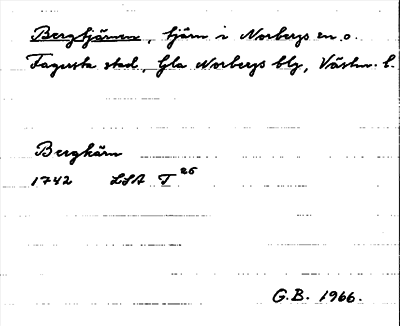 Bergtjärnen, tjärn i Norbergs sn o.
Fagersta stad, Gla Norbergs blg, Västm. l.
Bergkärn
1742 LSA T 26
G.B. 1966.